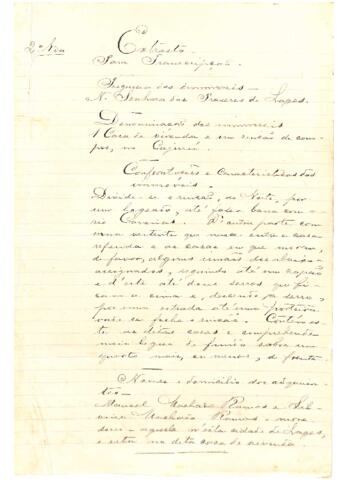 2ª Via
Extracto
Para Transcripção
Freguezia dos immoveis
N. Senhora dos Prazeres de Lages.
Denominação dos immoveis
1 Casa de vivenda e um rincão de campos, no Cajurú
Confrontações e Caracteristicos dos
immoveis
Divide-se o rincão, ao Norte, por
um lageado, até fazer barra com o
rio Caveiras. D'outra parte com
uma vertente que nasce entre a casa
referida e as casas em que moram,
de favor, alguns dos abaixo
assignados, seguindo até um capão
e d'este até dous serros que ficam
a cima e, descendo pª serro,
por uma estrada até uma porteira
onde se fecha o rincão.
as ditas casas e comprehenden
meia legua de fundo sobre um
quarto mais, ou menos, de frente.
Nomes e domicilio dos adquirentes
Manoel Machado Ramos e
Machado Ramos
aquelle n'esta cidade de Lages,
e esta na dita casa de vivenda